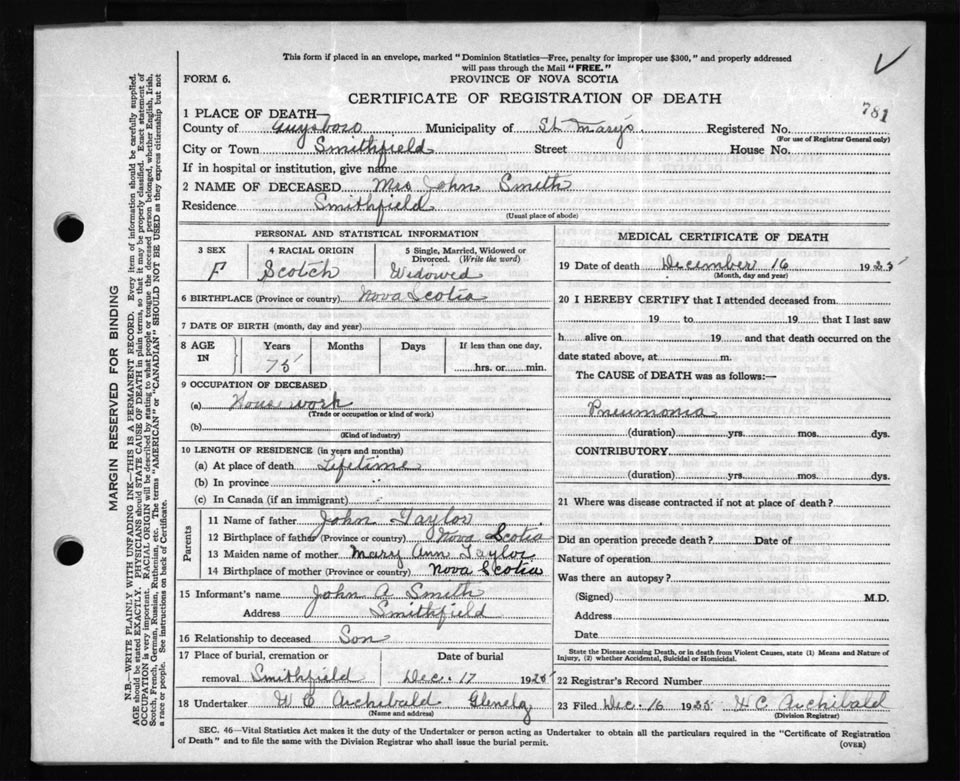 This form if placed in an envelope, marked "Dominion Statistics—Free, penalty for improper use $300," and properly addressed
will pass through the Mail "FREE."
FORM 6.
PROVINCE OF NOVA SCOTIA
CERTIFICATE OF REGISTRATION OF DEATH
781
1 PLACE OF DEATH—
County of Guysboro Municipality of St. Mary's Registered No.
(For use of Registrar General only)
City or Town Smithfield Street House No.
If in hospital or institution, give name
2 NAME OF DECEASED Mrs John Smith
Residence Smithfield
(Usual place of abode)
PERSONAL AND STATISTICAL INFORMATION
3 SEX F
4 RACIAL ORIGIN Scotch
5 Single, Married, Widowed or Divorced. (Write the word) Widowed
6 BIRTHPLACE (Province or country) Nova Scotia
7 DATE OF BIRTH (month, day and year)
8 AGE IN Years Months Days If less than one day,
75 hrs. or min.
9 OCCUPATION OF DECEASED
(a) House work
(Trade or occupation or kind of work)
(b)
(Kind of industry)
10 LENGTH OF RESIDENCE (in years and months)
(a) At place of death Lifetime
(b) In province
(c) In Canada (if an immigrant)
Parents
11 Name of father John Taylor
12 Birthplace of father (Province or country) Nova Scotia
13 Maiden name of mother Mary Ann Taylor
14 Birthplace of mother (Province or country) Nova Scotia
15 Informant's name John A Smith
Address Smithfield
16 Relationship to deceased Son
17 Place of burial, cremation or removal Smithfield
Date of burial Dec. 17 1925
18 Undertaker W C Archibald Glenelg
(Name and address)
MEDICAL CERTIFICATE OF DEATH
19 Date of death December 16 1925
(Month, day and year)
20 I HEREBY CERTIFY that I attended deceased from
19 to 19 that I last saw
h alive on 19 and that death occurred on the
date stated above, at m.
The CAUSE of DEATH was as follows:—
Pneumonia
(duration) yrs. mos. dys.
CONTRIBUTORY
(duration) yrs. mos. dys.
21 Where was disease contracted if not at place of death?
Did an operation precede death? Date of
Nature of operation
Was there an autopsy?
(Signed) M.D.
Address
Date
State the Disease causing Death, or in death from Violent Causes, state (1) Means and Nature of
Injury, (2) whether Accidental, Suicidal or Homicidal.
22 Registrar's Record Number
23 Filed Dec. 16 1925 H C Archibald
(Division Registrar)
SEC. 46—Vital Statistics Act makes it the duty of the Undertaker or person acting as Undertaker to obtain all the particulars required in the "Certificate of Registration
of Death" and to file the same with the Division Registrar who shall issue the burial permit.
(OVER)
MARGIN RESERVED FOR BINDING
N.B.—WRITE PLAINLY WITH UNFADING INK—THIS IS A PERMANENT RECORD. Every item of information should be carefully supplied.
AGE should be stated EXACTLY. PHYSICIANS should STATE CAUSE OF DEATH in plain terms, so that it may be properly classified. Exact statement of
OCCUPATION is very important. RACIAL ORIGIN will be described by stating to what people or tongue the deceased person belonged, whether English, Irish,
Scotch, French, German, Russian, Ruthenian, etc. The terms "AMERICAN" or "CANADIAN" SHOULD NOT BE USED as they express citizenship but not
a race or people. See instructions on back of Certificate.